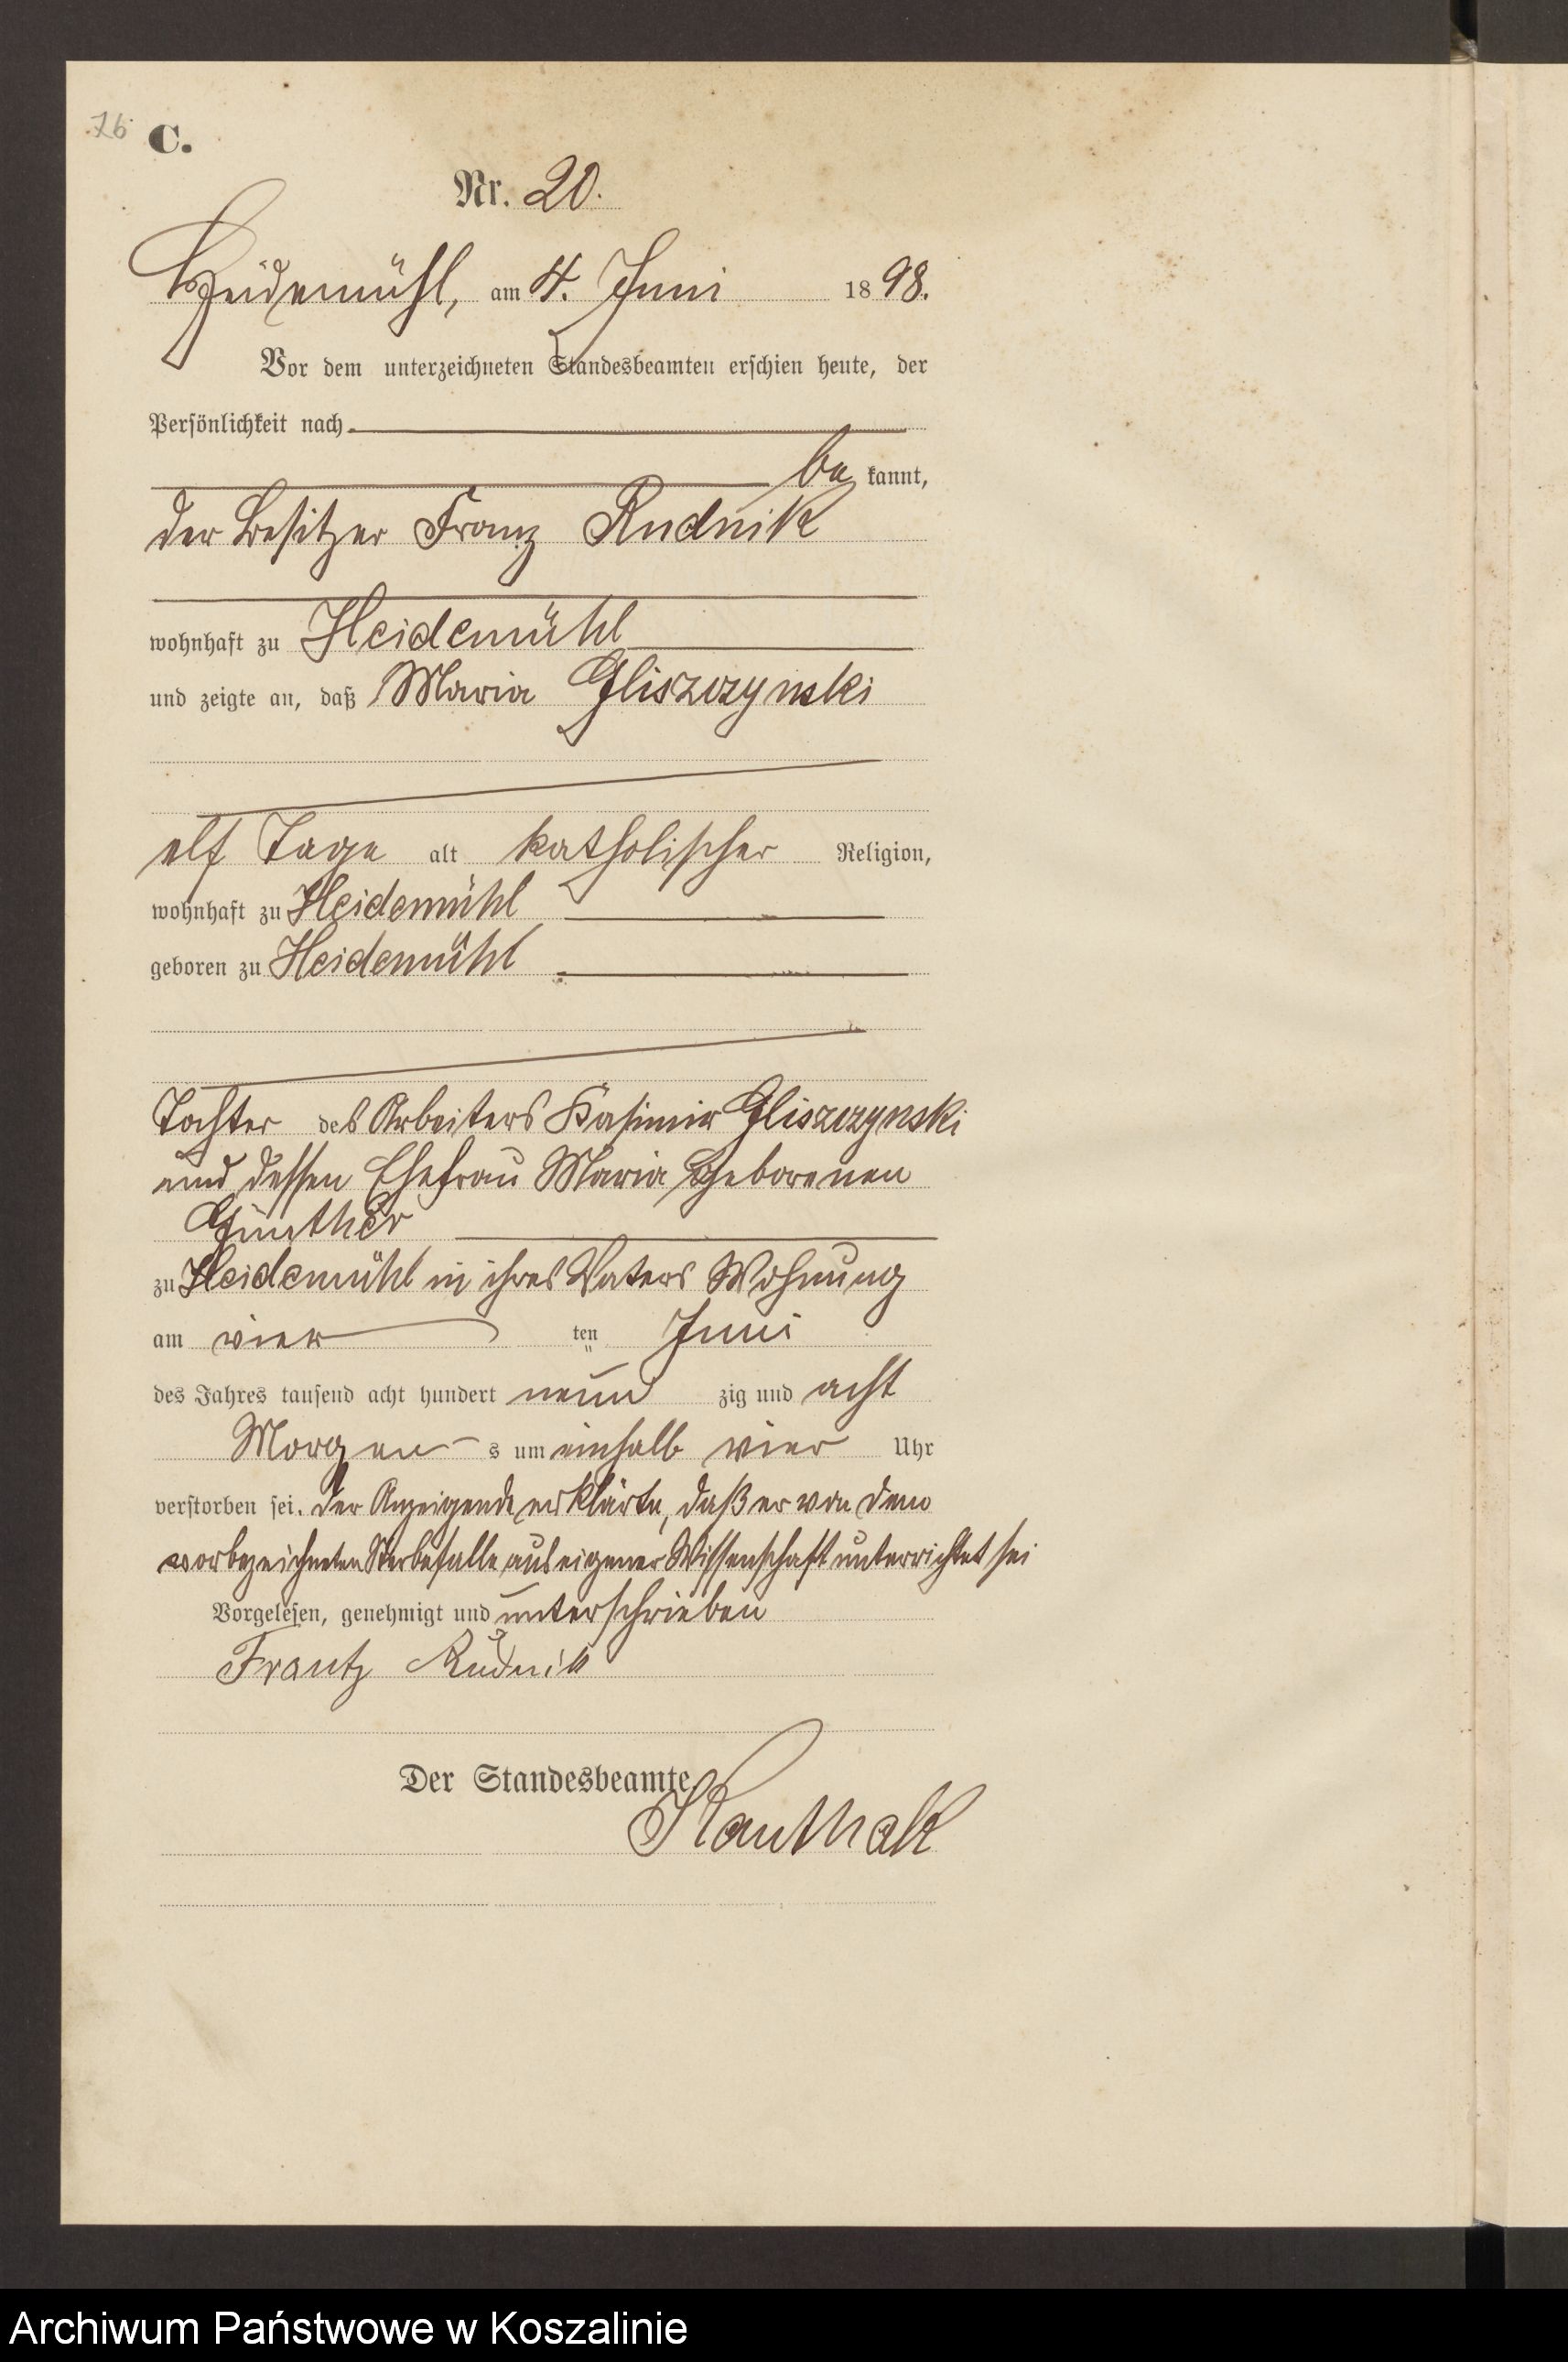 76
C.
Nr. 20.
Heidemühl, am 4. Juni 1898.
Vor dem unterzeichneten Standesbeamten erschien heute, der
Persönlichkeit nach
be kannt,
der Besitzer Franz Rudnik
wohnhaft zu Heidemühl
und zeigte an, daß Maria Gliszczynski
elf Tage alt katholischer Religion,
wohnhaft zu Heidemühl
geboren zu Heidemühl
Tochter des Arbeiters Kasimir Gliszczynski
und dessen Ehefrau Maria Geborenen
Günther
zu Heidemühl in ihres Vaters Wohnung
am vier ten Juni
des Jahres tausend acht hundert neun zig und acht
Morgen s um einhalb vier Uhr
verstorben sei. Der Anzeigende erklärte, daß er von dem
vorbezeichneten Sterbefalle aus eigener Wissenschaft unterrichtet sei
Vorgelesen, genehmigt und unterschrieben
Frantz Rudnik
Der Standesbeamte
Archiwum Państwowe w Koszalinie